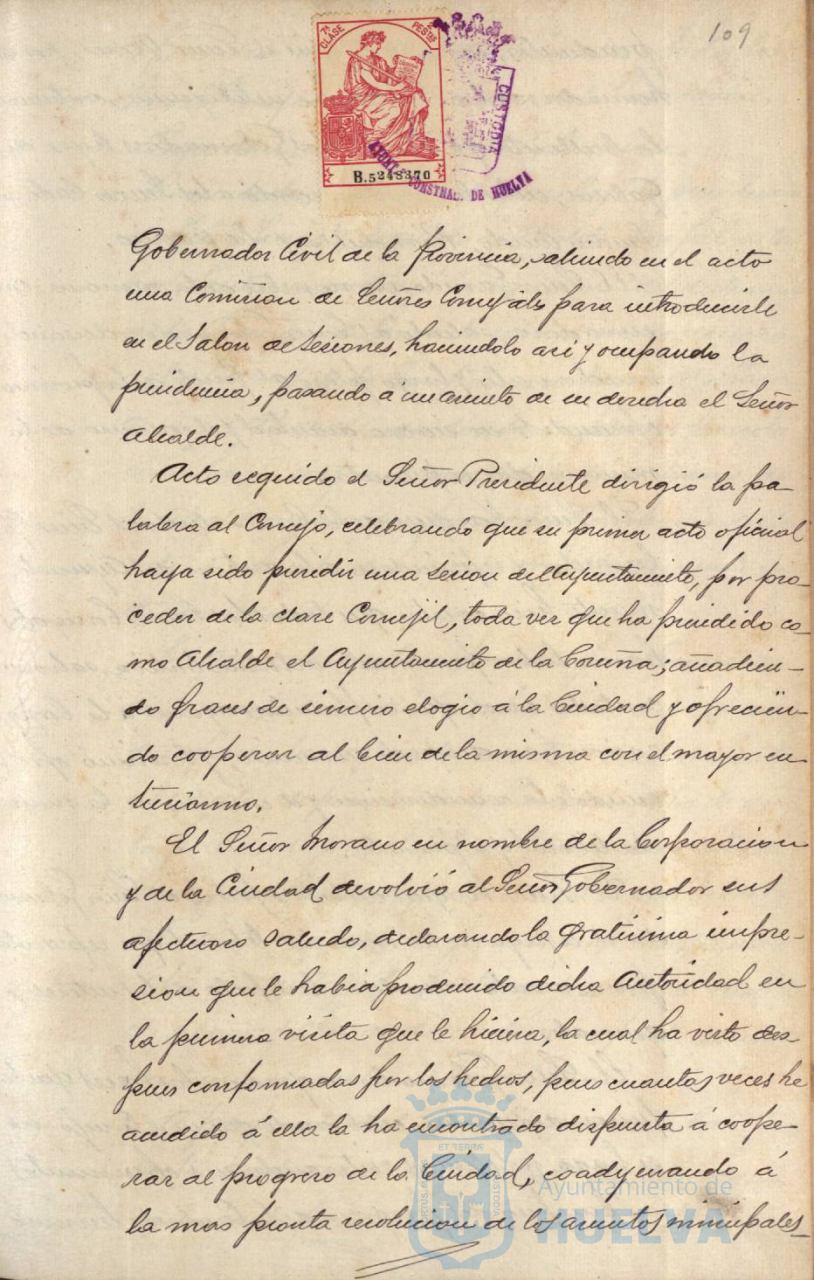 109
7ª CLASE PESTAS
B.5248370
CUSTODIA
AYUNTº CONSTNAL. DE HUELVA
Gobernador Civil de la Provincia, saliendo en el acto
una Comision de Señores Concejales para introducirle
en el Salon de Sesiones, haciendolo asi y ocupando la
presidencia, pasando á un asiento de su derecha el Señor
Alcalde.
Acto seguido el Señor Presidente dirigió la pa
labra al Concejo, celebrando que su primer acto oficial
haya sido presidir una sesion del Ayuntamiento, por pro-
ceder de la clase Concejil, toda vez que ha presidido co-
mo Alcalde el Ayuntamiento de la Coruña; añadien-
do frases de sincero elogio á la Ciudad y ofrecien-
do cooperar al bien de la misma con el mayor en
tusiasmo.
El Señor Morano en nombre de la Corporacion
y de la Ciudad devolvió al Señor Gobernador sus
afectuoso saludo, declarando la gratisima impre-
sion que le habia producido dicha Autoridad en
la primera visita que le hiciera, la cual ha visto des-
pues confirmadas por los hechos, pues cuantas veces he
acudido á ella la ha encontrado dispuesta á coope-
rar al progreso de la Ciudad, coadyuvando á
la mas pronta resolucion de los asuntos municipales
Ayuntamiento de
HUELVA